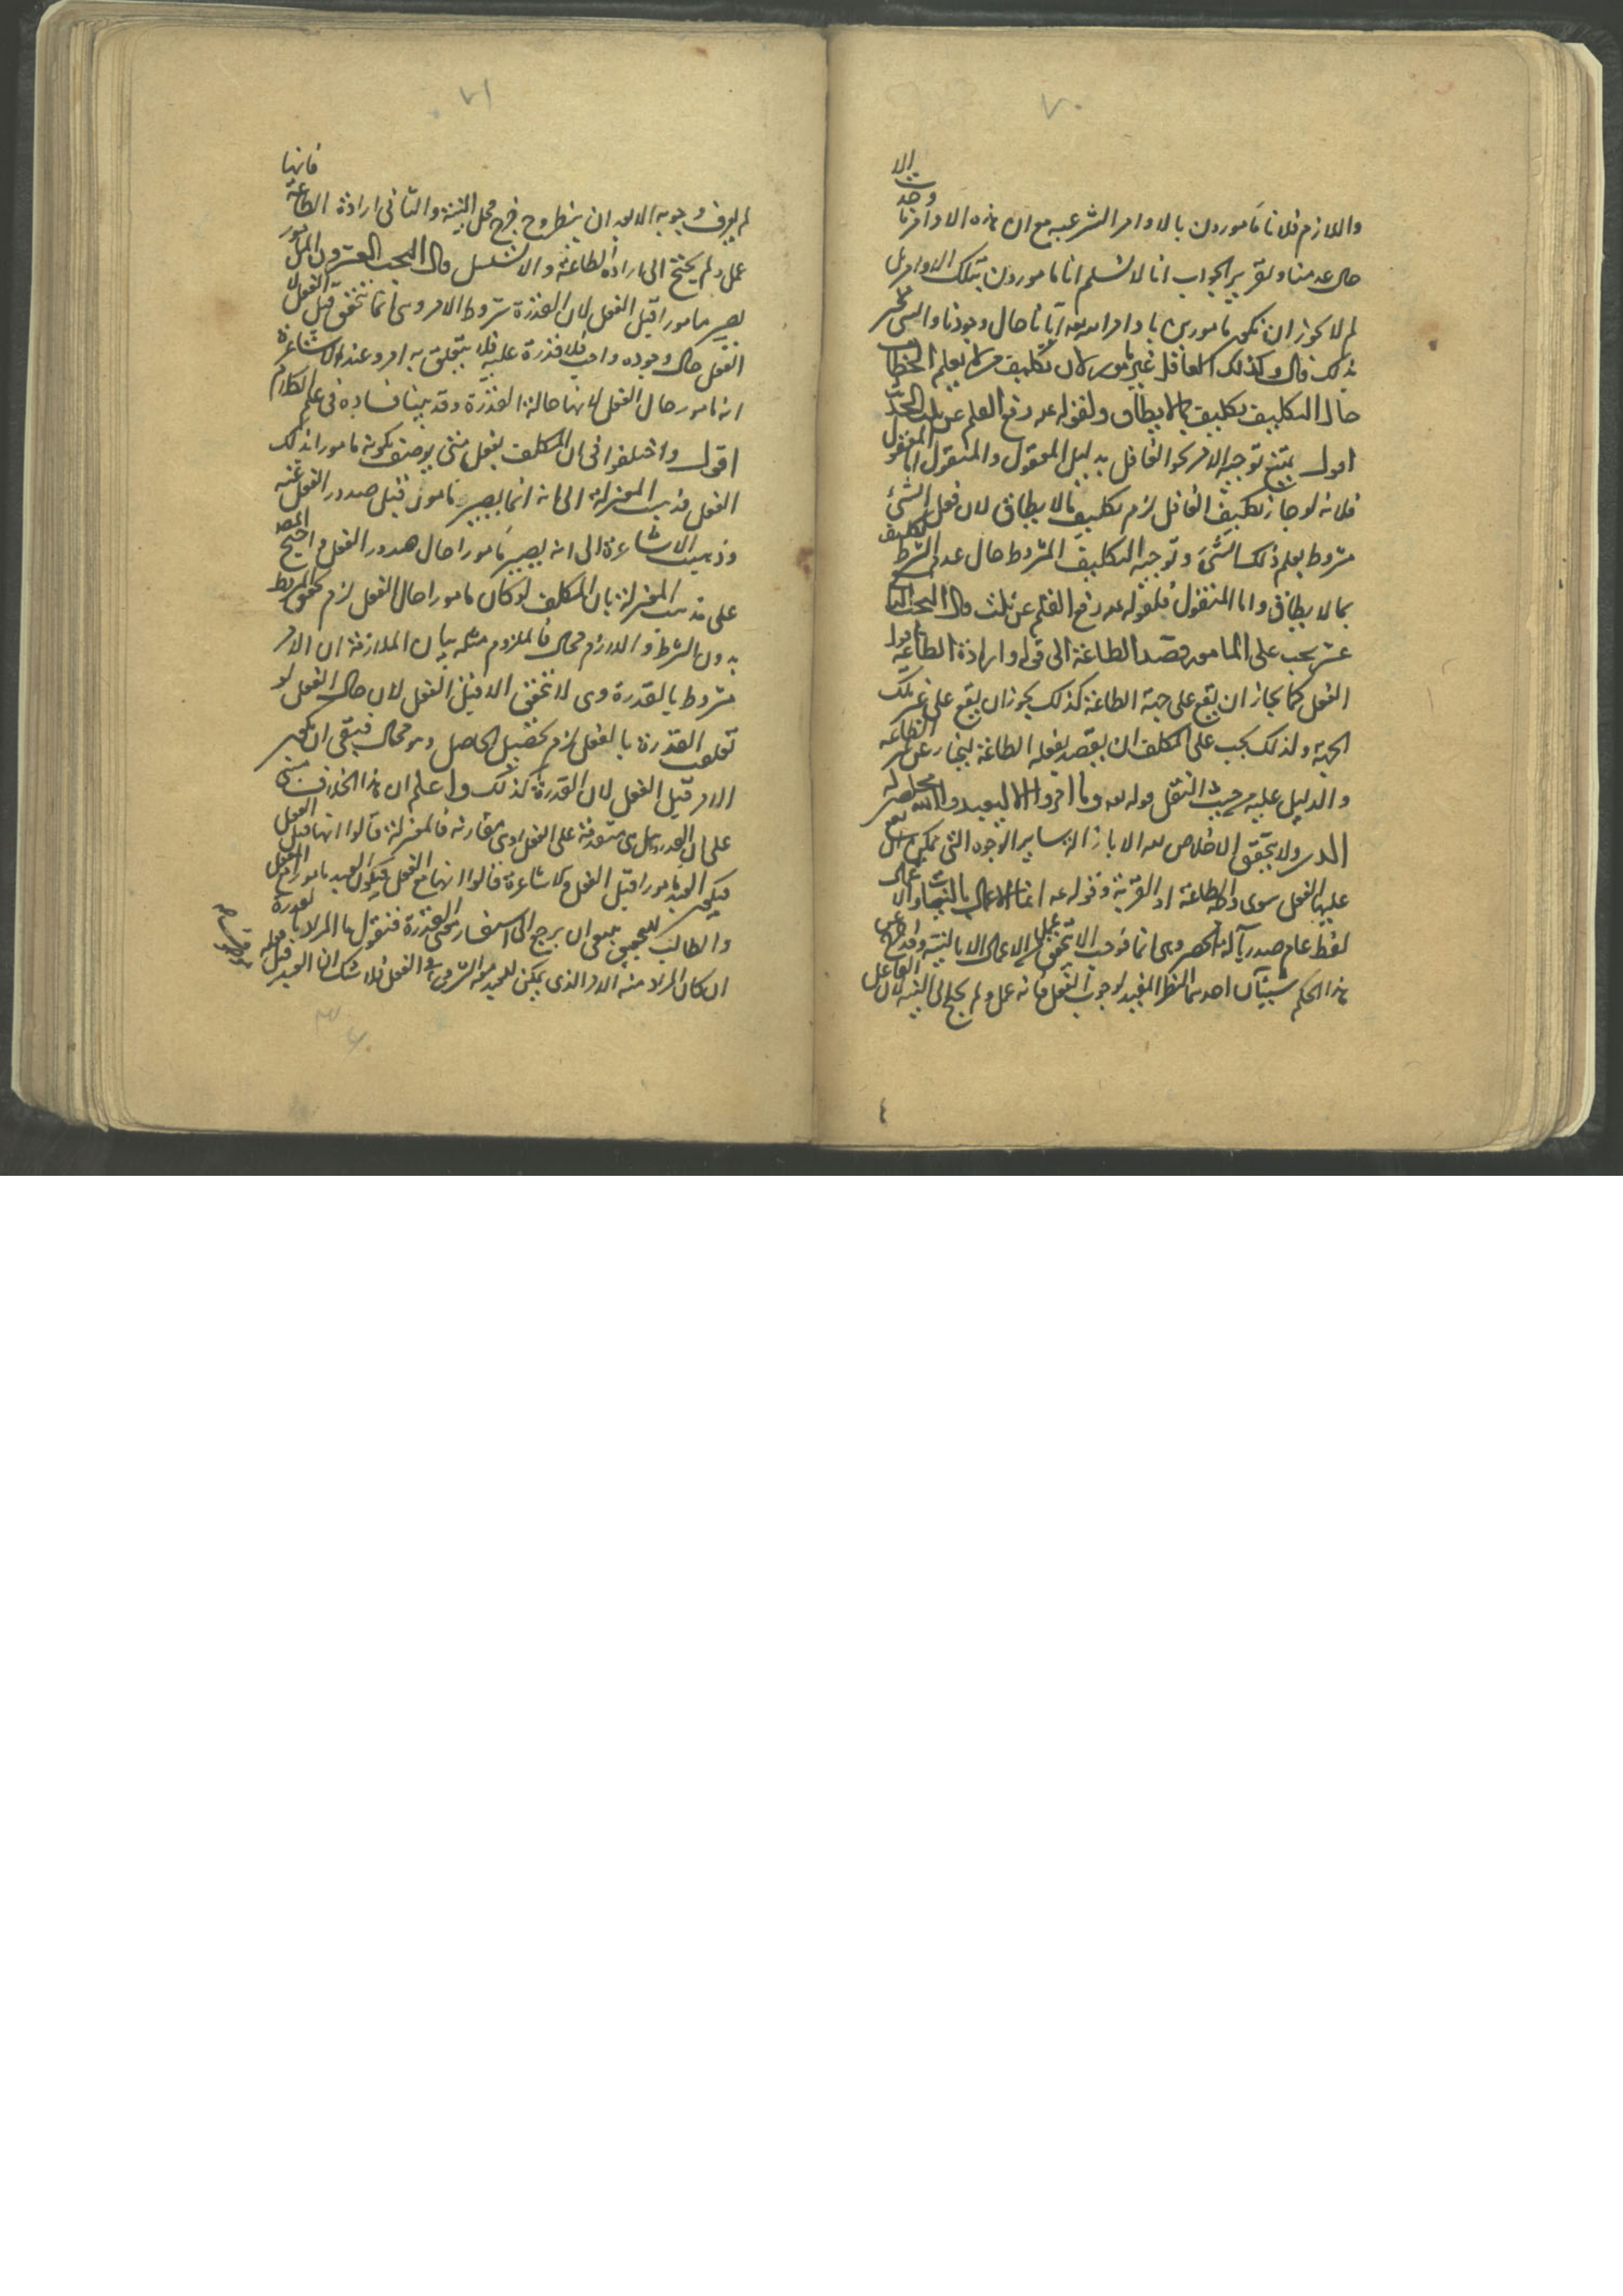 ٧٠
الا
وجدت
واللازم فلانا مامورون بالاوامر الشرعية مع ان هذه الاوامر ما
حال عدمنا وتقرير الجواب انا لا نسلم انا مامورون بتلك الاوامر بل
لم لا يجوز ان نكون مامورين باوامر الله تعه ايانا حال وجودنا والنبي مخبر
بذلك قال وكذلك الغافل غير مامور لان تكليف من لا يعلم الخطاب
حال التكليف تكليف بما لا يطاق ولقوله عم رفع القلم عن ثلث الحديث
اقول يمتنع توجيه الامر نحو الغافل بدليل المعقول والمنقول اما المعقول
فلانه لو جاز تكليف الغافل لزم تكليف ما لا يطاق لان فعل الشيء
مشروط بعلم ذلك الشيء وتوجيه التكليف المشروط حال عدم الشرط تكليف
بما لا يطاق واما المنقول فلقوله عم رفع القلم عن ثلث قال البحث
عشر يجب على المامور قصد الطاعة الى قوله وارادة الطاعة اقول
الفعل كما جاز ان يقع على جهة الطاعة كذلك يجوز ان يقع على غير تلك
الجهة ولذلك يجب على المكلف ان يقصد بفعله الطاعة ليمتاز عن غير الطاعة
والدليل عليه من حيث النقل قوله تعه وما امروا الا ليعبدوا الله مخلصين له
الدين ولا يتحقق الاخلاص لله الا بازالة ساير الوجوه التي يمكن ان يقع
عليها الفعل سوى وجه الطاعة او القربة وقوله عم انما الاعمال بالنيات والاعمال
لفظ عام صدر بآلة الحصر وهي انما فوجب الا يتحقق عمل من الاعمال الا بالنية وقد خرج عن
هذا الحكم شيئان احدهما النظر المفيد لوجوب الفعل فانه عمل ولم يحتج الى النية لان الفاعل
٤
٧١
فانها
لم يعرف وجوبه الا بعد ان ينظر وح خرج محل النية والثاني ارادة الطاعة
عمل ولم يحتج الى ارادة الطاعة والا تسلسل قال البحث العشرون المامور
يصير مامورا قبل الفعل لان القدرة شروط الامر وهي انما تتحقق قبل الفعل لا
الفعل حال وجوده واجب فلا قدرة عليه فلا يتعلق به امر وعند الاشاعرة
انه مامور حال الفعل لانها حالة القدرة وقد بينا فساده في علم الكلام
اقول واختلفوا في ان المكلف بفعل متى يوصف بكونه مامورا بذلك
الفعل فذهب المعتزلة الى انه انما يصير مامورا قبل صدور الفعل عنه
وذهب الاشاعرة الى انه يصير مامورا حال صدور الفعل واحتج المصه
على مذهب المعتزلة بان المكلف لو كان مامورا حال الفعل لزم تحقق المشروط
بدون الشرط واللازم محال فالملزوم مثله بيان الملازمة ان الامر
مشروط بالقدرة وهي لا تتحقق الا قبل الفعل لان حال الفعل لو
تعلقت القدرة بالفعل لزم تحصيل الحاصل وهو محال فبقي ان يكون
الامر قبل الفعل لان القدرة كذلك واعلم ان هذا الخلاف مبني
على ان القدرة هل هي متقدمة على الفعل او هي مقارنة فالمعتزلة قالوا انها قبل الفعل
فيكون العبد مامورا قبل الفعل والاشاعرة قالوا انها مع الفعل فيكون العبد مامورا مع الفعل
والطالب للتحقيق ينبغي ان يرجع الى استفسار معنى القدرة فنقول ما المراد بالقدرة
ان كان المراد منه الامر الذي يمكن للعبد من الشروع في الفعل فلا شك ان العبد قبل فعله